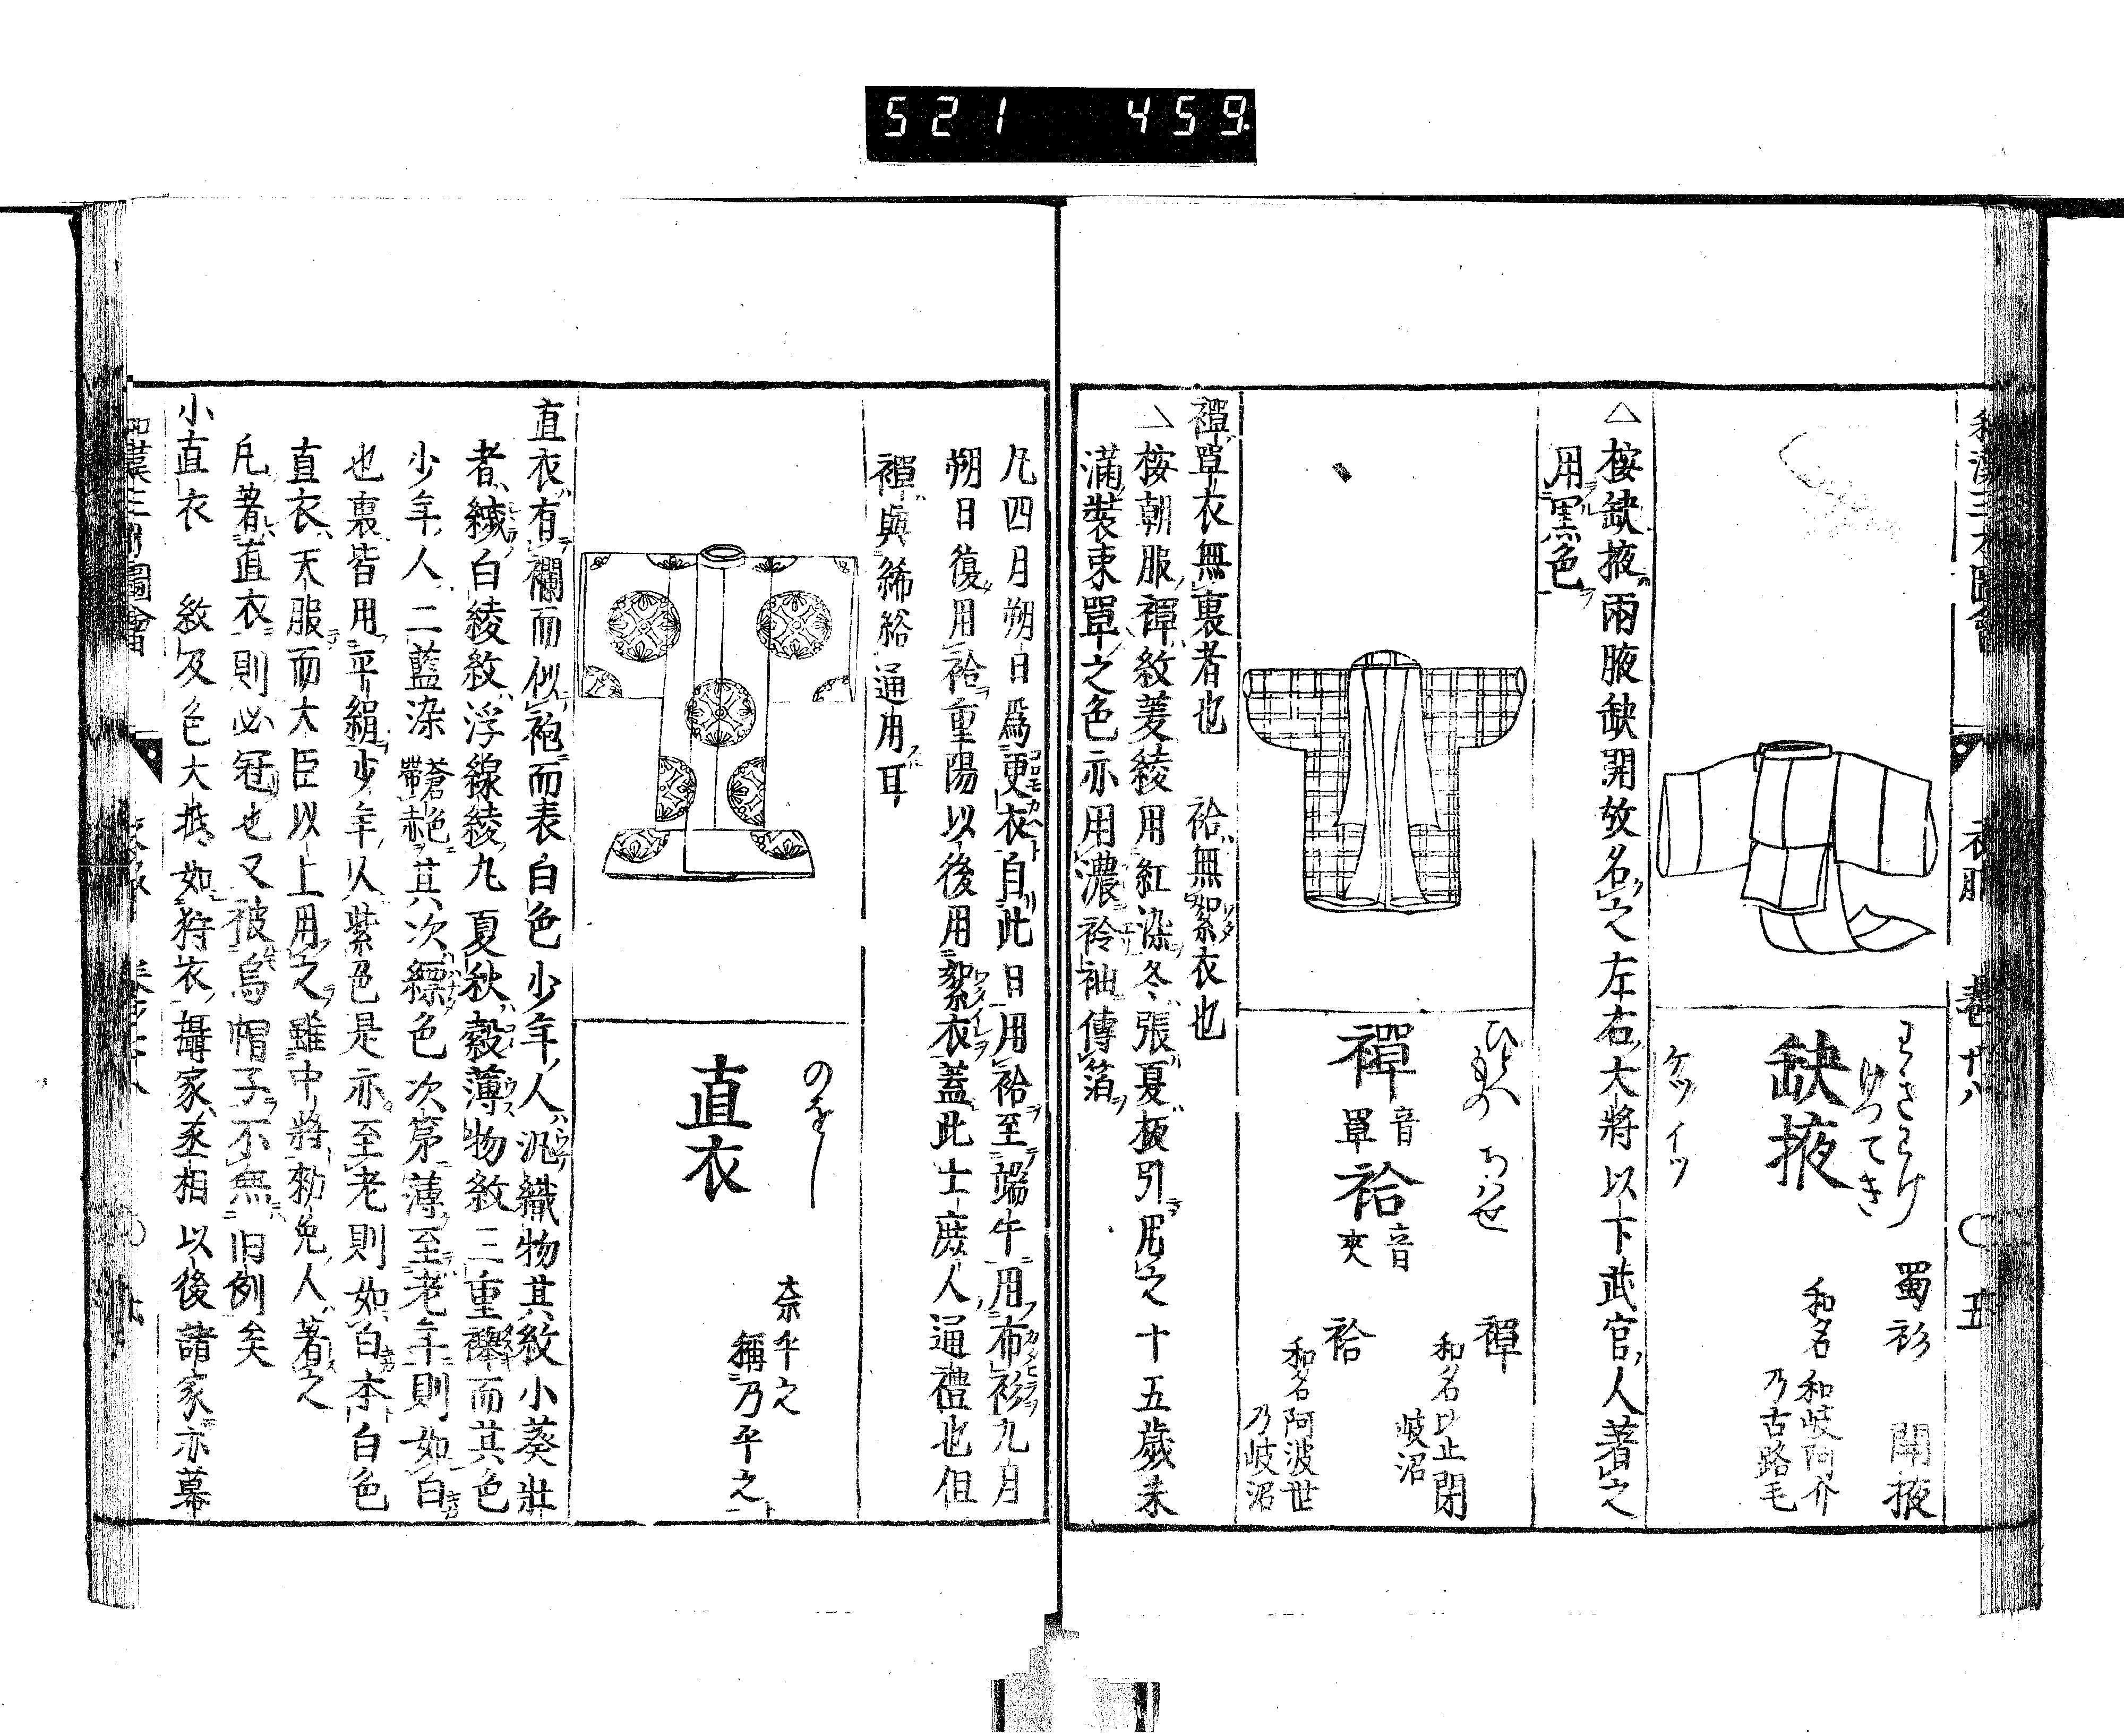 521 459.
和漢三才圖會 衣服 卷二十八 ○ 五
わきあけ
けつてき
缺掖
ケツ イツ
蜀衫 開掖
和名 和岐阿介
乃古路毛
△按缺掖兩腋缺開故名之左右大將以下武官人著之
用黒色
ひとへもの あはせ
襌 音單 袷 音夾
襌 和名比止閉
岐沼
袷 和名阿波世
乃岐沼
襌單衣無裏者也 袷無絮衣也
△按朝服襌紋菱綾用紅染冬張夏板引用之十五歳未
滿裝束單之色亦用濃衿袖傳箔
凡四月朔日爲更衣自此日用袷至端午用布衫九月
朔日復用袷重陽以後用絮衣蓋此士庶人通禮也但
襌與絺綌通用耳
のをし
直衣
奈乎之
稱乃平之
直衣有襴而似袍而表白色少年人汎織物其紋小葵壯
者綾白綾紋浮線綾九 夏秋縠薄物紋三重襷而其色
少年人二藍染 蒼色帶赤 其次縹色次第薄至老年則如白
也裏皆用平絹少年人紫色是亦至老則如白本白色
直衣天服而大臣以上用之雖中將勅免人著之
凡著直衣則必冠也又被烏帽子不無旧例矣
小直衣 紋及色大抵如狩衣攝家丞相以後諸家亦幕
和漢三才圖會